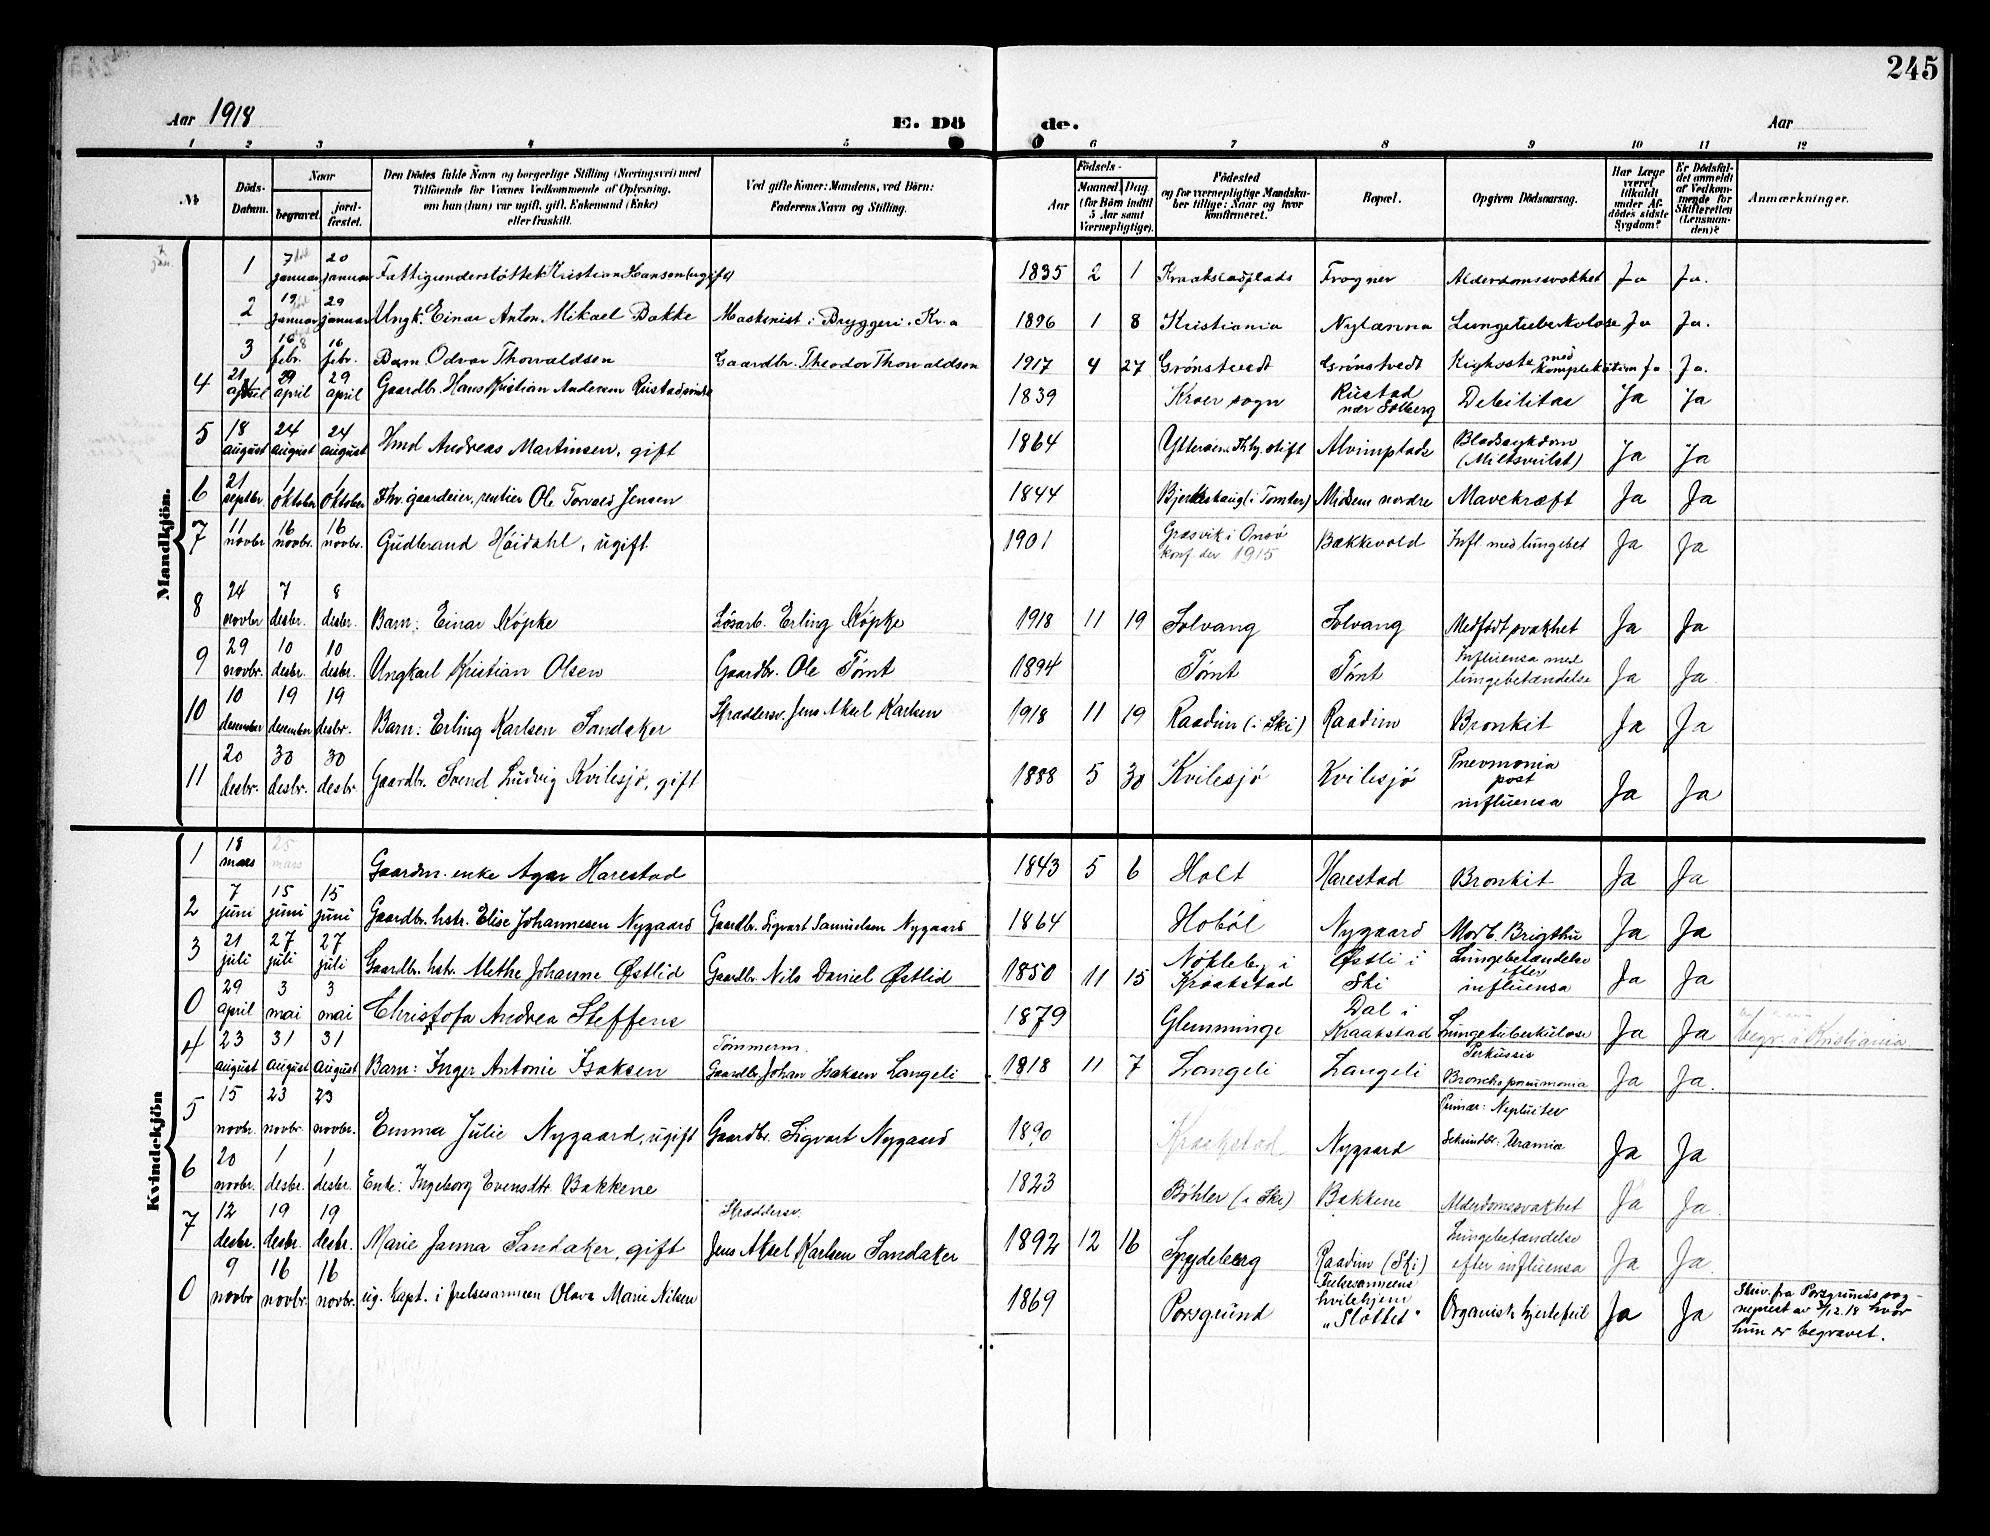 245
Aar 1918
E. Dö
de.
Aar
1 2 3 4 5 6 7 8 9 10 11 12
№
Döds-Datum.
Naar
begravet.
jord-fæstet.
Den Dödes fulde Navn og borgerlige Stilling (Næringsvei) med
Tilföiende for Voxnes Vedkommende af Oplysning,
om han (hun) var ugift, gift, Enkemand (Enke)
eller fraskilt.
Ved gifte Koner: Mandens, ved Börn:
Faderens Navn og Stilling.
Födsels-
Aar
Maaned Dag
(for Börn indtil
5 Aar samt
Værnepligtige).
Födested
og for værnepligtige Mandska-
ber tillige: Naar og hvor
konfirmeret.
Bopæl.
Opgiven Dödsaarsag.
Har Læge
været
tilkaldt
under Af-
dödes sidste
Sygdom?
Er Dödsfal-
det anmeldt
af Vedkom-
mende for
Skifteretten
(Lensman-
den)?
Anmærkninger.
Mandkjön.
1 7 januar 20 januar Fattigunderstøttet Kristian Hansen (ugift) 1835 2 1 Kraakstadplads Frogner Alderdomssvakhet Ja Ja.
2 19 januar 29 januar Ungk. Einar Anton Mikael Bakke Maskinist i Bryggeri. Kr.a 1896 1 8 Kristiania Nylænna Lungetuberkulose Ja Ja.
3 16 febr. 16 febr. Barn Odvar Thorvaldsen Gaardbr. Theodor Thorvaldsen 1917 4 27 Grønstvedt Grønstvedt Kighoste med komplekation Ja Ja.
4 21 april 29 april 29 april Gaardbr. Hans Kristian Andersen Rustad søndre 1839 Kroer sogn Rustad nær Solberg Debilitas Ja Ja
5 18 august 24 august 24 august Hmd Andreas Martinsen, gift 1864 Alvimplads Blodsygdom (Miltsvulst) Ja Ja
6 21 septbr 1 oktober 1 oktober Fhv. gaardeier, rentier Ole Torvald Jensen 1844 Bjerkeshaug (i Tomter) Midsem nordre Mavekræft Ja Ja
7 11 novbr 16 novbr. 16 novbr. Gudbrand Höidahl, ugift 1901 Græsvik i Onsö konf. der 1915 Bækkevold Infl. med lungebet Ja Ja
8 24 novbr 7 desbr. 8 desbr. Barn: Einar Köpke Lösarb. Erling Köpke 1918 11 19 Solvang Solvang Medfödt svakhet Ja Ja
9 29 novbr. 10 desbr. 10 desbr. Ungkarl Kristian Olsen Gaardbr. Ole Tömt 1894 Tömt Tömt Influensa med lungebetændelse Ja Ja
10 10 desember 19 desember 19 desbr. Barn: Erling Karlsen Sandaker Skræddersv. Jens Aksel Karlsen 1918 11 19 Raadim (i Ski) Raadim Bronkit Ja Ja
11 20 desbr. 30 desbr. 30 desbr. Gaardbr. Svend Ludvig Kvilesjö, gift 1888 5 30 Kvilesjö Kvilesjö Pnevmonia post influensa Ja Ja
Kvindekjön
1 18 mars 25 mars Gaardm. enke Agar Harestad 1843 5 6 Holt Harestad Bronkit Ja Ja
2 7 juni 15 juni 15 juni Gaardbr. hstr. Elise Johannesen Nygaard Gaardbr. Sigvart Samuelsen Nygaard 1864 Hoböl Nygaard Morb. Brigthii Ja Ja
3 21 juli 27 juli 27 juli Gaardbr. hstr. Alethe Johanne Østlid Gaardbr. Nils Daniel Østlid 1850 11 15 Nökleby i Kraakstad Østli i Ski Lungebetændelse efter influensa Ja Ja
0 29 april 3 mai 3 mai Christofa Andrea Steffens 1879 Glemminge Dal i Kraakstad Lungetuberkulose Ja Ja begr. i Kristiania
4 23 august 31 august 31 august Barn: Inger Antonie Isaksen Tömmerm. Gaardbr. Johan Isaksen Langeli 1918 11 7 Langeli Langeli Perkussis Bronchopneumonia Ja Ja.
5 15 novbr. 23 novbr. 23 novbr. Emma Julie Nygaard, ugift Gaardbr. Sigvart Nygaard 1890 Kraakstad Nygaard Primær: Sekundær: Uræmia Ja Ja
6 20 novbr. 1 desbr. 1 desbr. Enke: Ingeborg Evensdtr. Bakkene 1823 Böhler (i Ski) Bakkene Alderdomssvakhet Ja Ja.
7 12 desbr. 19 desbr. 19 desbr. Marie Janna Sandaker, gift Skræddersv. Jens Aksel Karlsen Sandaker 1892 12 16 Spydeberg Raadim (Ski) Lungebetændelse efter influensa Ja Ja.
0 9 novbr 16 novbr. 16 novbr. ug. kapt. i frelsesarmeen Olava Marie Nilsen 1869 Porsgrund Frelsesarmeens hvilehjem "Slottet" Organisk hjertefeil Ja Ja Skriv. fra Porsgrunds sog-
neprest av /12.18 hvor
hun er begravet.